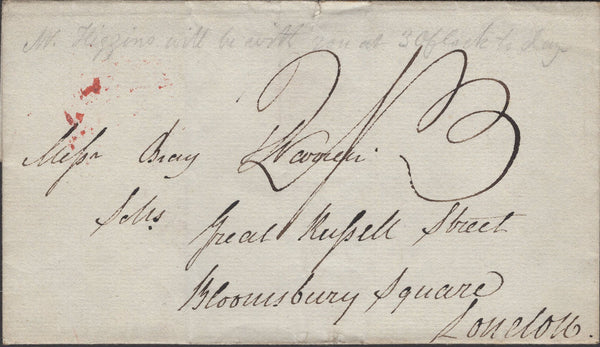 Mr. Higgins will be with you at 3 O'Clock to day
2/3
Messrs Bray & Warren
Sols
Great Russell Street
Bloomsbury Square
London.